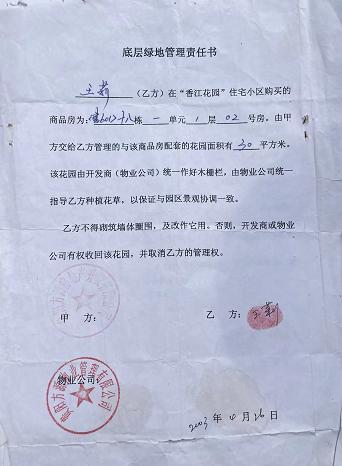 底层绿地管理责任书
王莉（乙方）在“香江花园”住宅小区购买的
商品房为：十八栋 一 单元 1 层 02 号房。由甲
方交给乙方管理的与该商品房配套的花园面积有 30 平方米。
该花园由开发商（物业公司）统一作好木栅栏，由物业公司统一
指导乙方种植花草，以保证与园区景观协调一致。
乙方不得砌筑墙体圈围，及改作它用。否则，开发商或物业
公司有权收回该花园，并取消乙方的管理权。
甲 方： 乙 方：王莉
物业公司：
2003 年 4 月 26 日